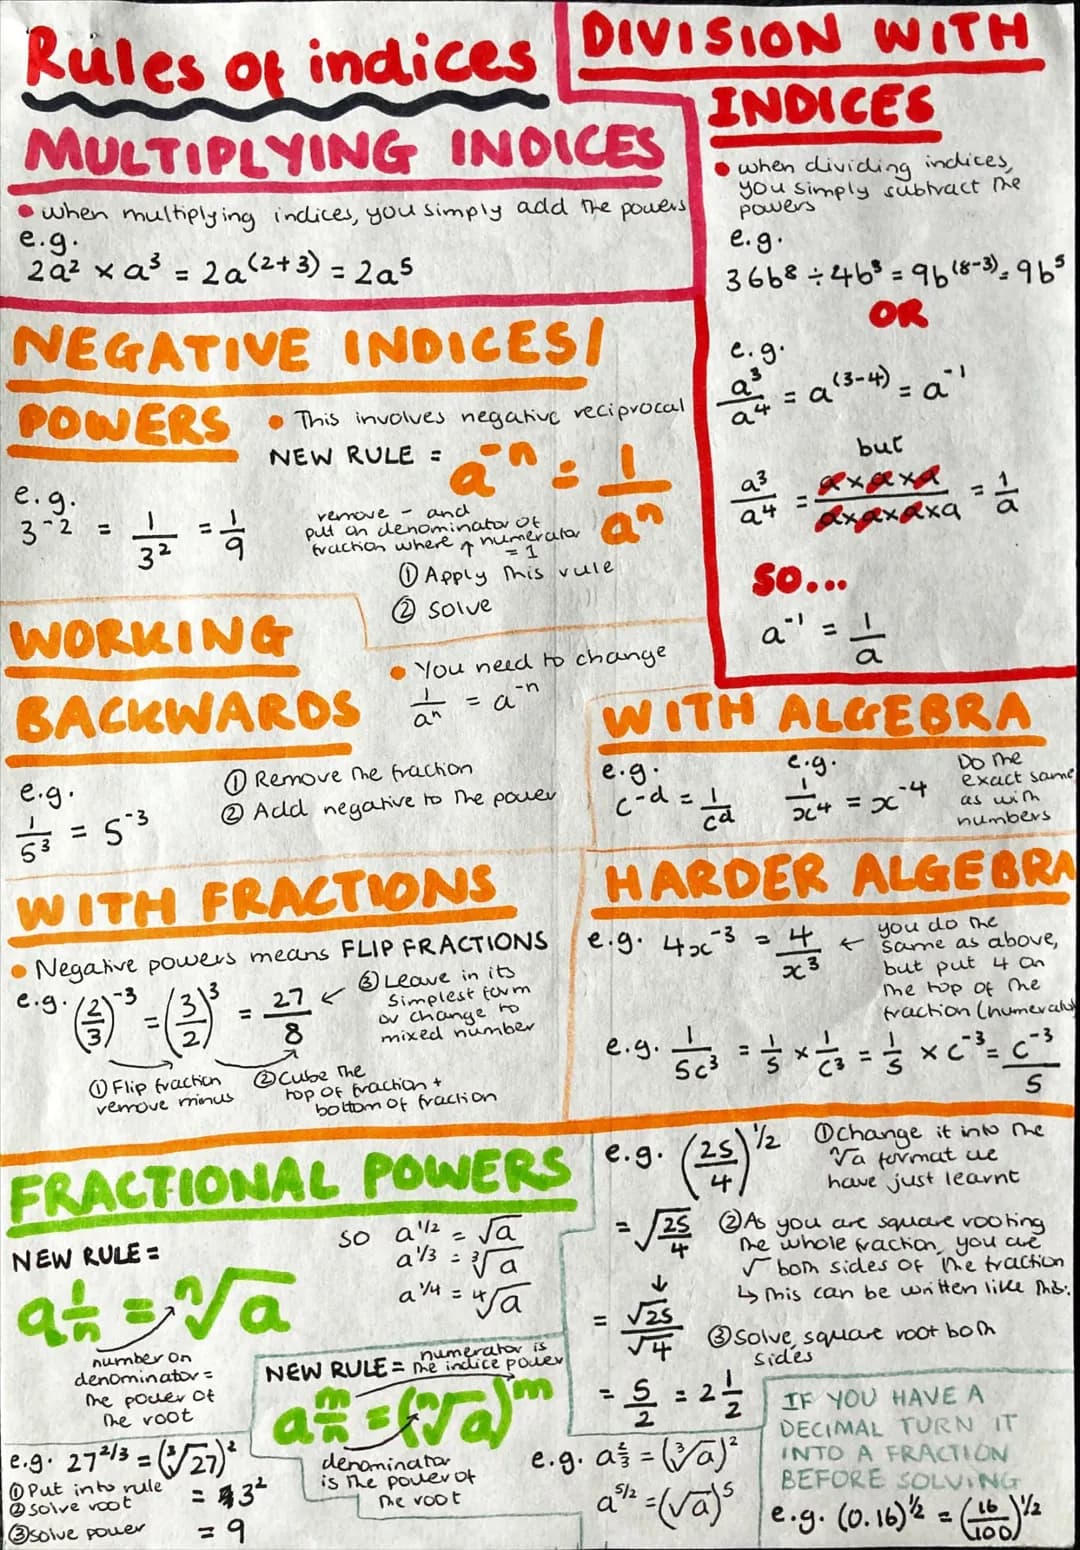 Rules of indices
MULTIPLYING INDICES
• when multiplying indices, you simply add the powers
e.g.
2a² × a³ = 2a⁽²⁺³⁾ = 2a⁵
DIVISION WITH
INDICES
• when dividing indices,
you simply subtract the
powers
e.g.
36b⁸ ÷ 4b³ = 9b⁽⁸⁻³⁾ = 9b⁵
OR
e.g.
a³/a⁴ = a⁽³⁻⁴⁾ = a⁻¹
but
a³/a⁴ = a×a×a/a×a×a×a = 1/a
SO...
a⁻¹ = 1/a
NEGATIVE INDICES/
POWERS
• This involves negative reciprocal
NEW RULE = a⁻ⁿ = 1/aⁿ
e.g.
3⁻² = 1/3² = 1/9
remove - and
put on denominator of
fraction where ↑ numerator
= 1
① Apply this rule
② Solve
WORKING
BACKWARDS
• You need to change
1/aⁿ = a⁻ⁿ
e.g.
1/5³ = 5⁻³
① Remove the fraction
② Add negative to the power
WITH ALGEBRA
e.g.
c⁻ᵈ = 1/cᵈ
e.g.
1/x⁴ = x⁻⁴
Do the
exact same
as with
numbers
WITH FRACTIONS
• Negative powers means FLIP FRACTIONS
e.g. (2/3)⁻³ = (3/2)³ = 27/8 ←
③ Leave in its
simplest form
or change to
mixed number
① Flip fraction
remove minus
② Cube the
top of fraction +
bottom of fraction
HARDER ALGEBRA
e.g. 4x⁻³ = 4/x³ ←
you do the
same as above,
but put 4 on
the top of the
fraction (numerator
e.g. 1/5c³ = 1/5 × 1/c³ = 1/5 × c⁻³ = c⁻³/5
FRACTIONAL POWERS
NEW RULE =
a^1/n = ⁿ√a
number on
denominator =
the power of
the root
so a^1/2 = √a
a^1/3 = ³√a
a^1/4 = ⁴√a
NEW RULE = numerator is
the indice power
a^m/n = (ⁿ√a)ᵐ
denominator
is the power of
the root
e.g. 27^2/3 = (³√27)²
① Put into rule
② Solve root = 3²
③ solve power = 9
e.g. a^2/3 = (³√a)²
a^5/2 = (√a)⁵
e.g. (25/4)^1/2
① Change it into the
√a format we
have just learnt
= √25/4
② As you are square rooting
the whole fraction, you are
√ both sides of the fraction
↳ this can be written like this:
↓
= √25/√4
③ Solve, square root both
sides
= 5/2 = 2 1/2
IF YOU HAVE A
DECIMAL TURN IT
INTO A FRACTION
BEFORE SOLVING
e.g. (0.16)^1/2 = (16/100)^1/2